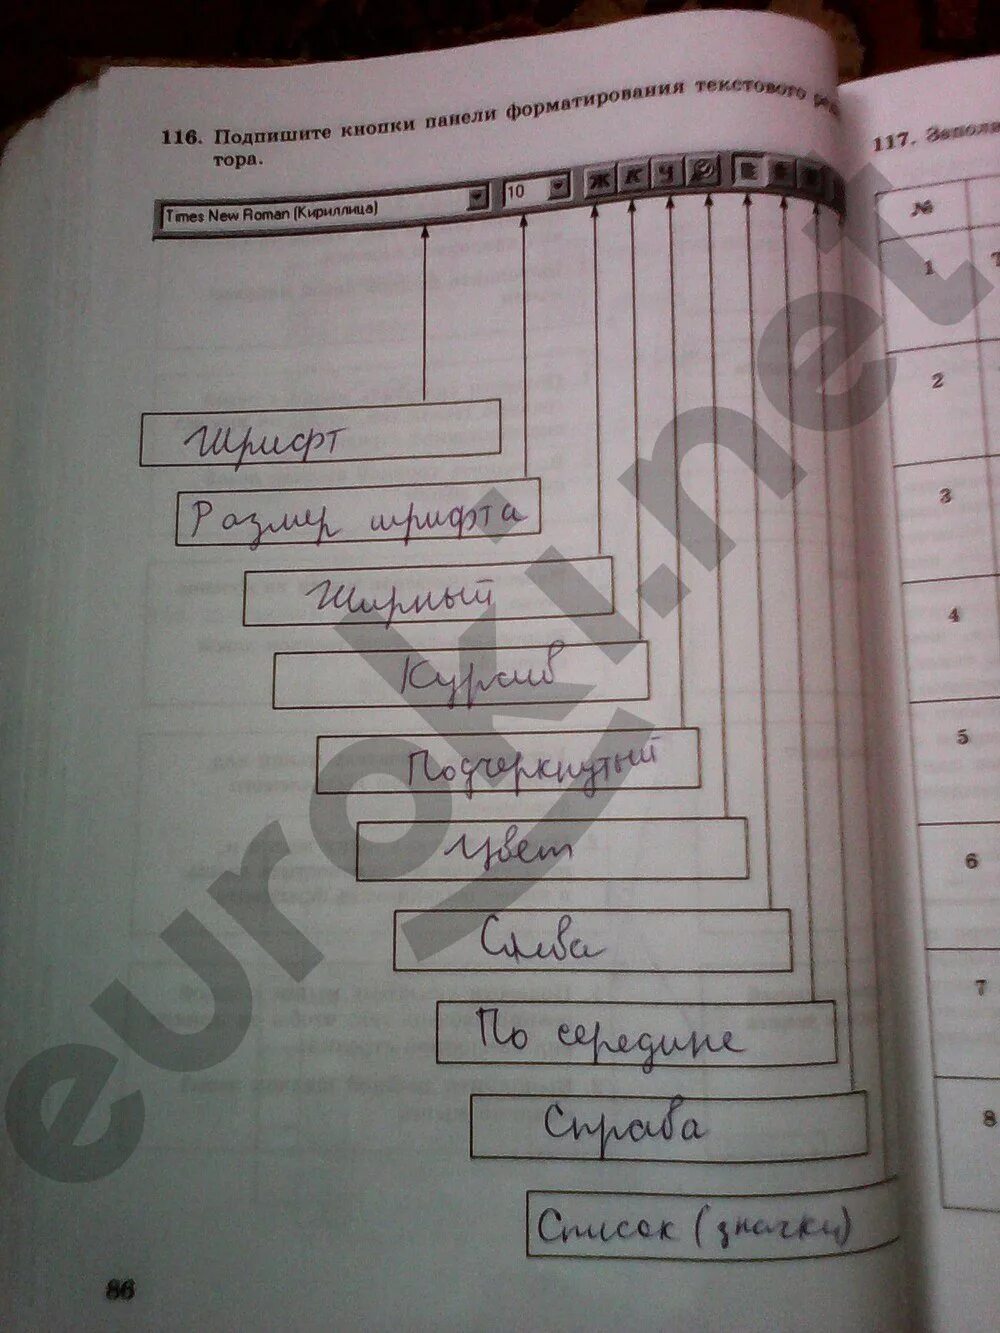 116. Подпишите кнопки панели форматирования текстового
тора.
Times New Roman (Кириллица)
10
Ж К Ч
Шрифт
Размер шрифта
Жирный
Курсив
Подчеркнутый
Цвет
Слева
По середине
Справа
Список (значки)
86
117.
№
1
2
3
4
5
6
7
8
euroki.net